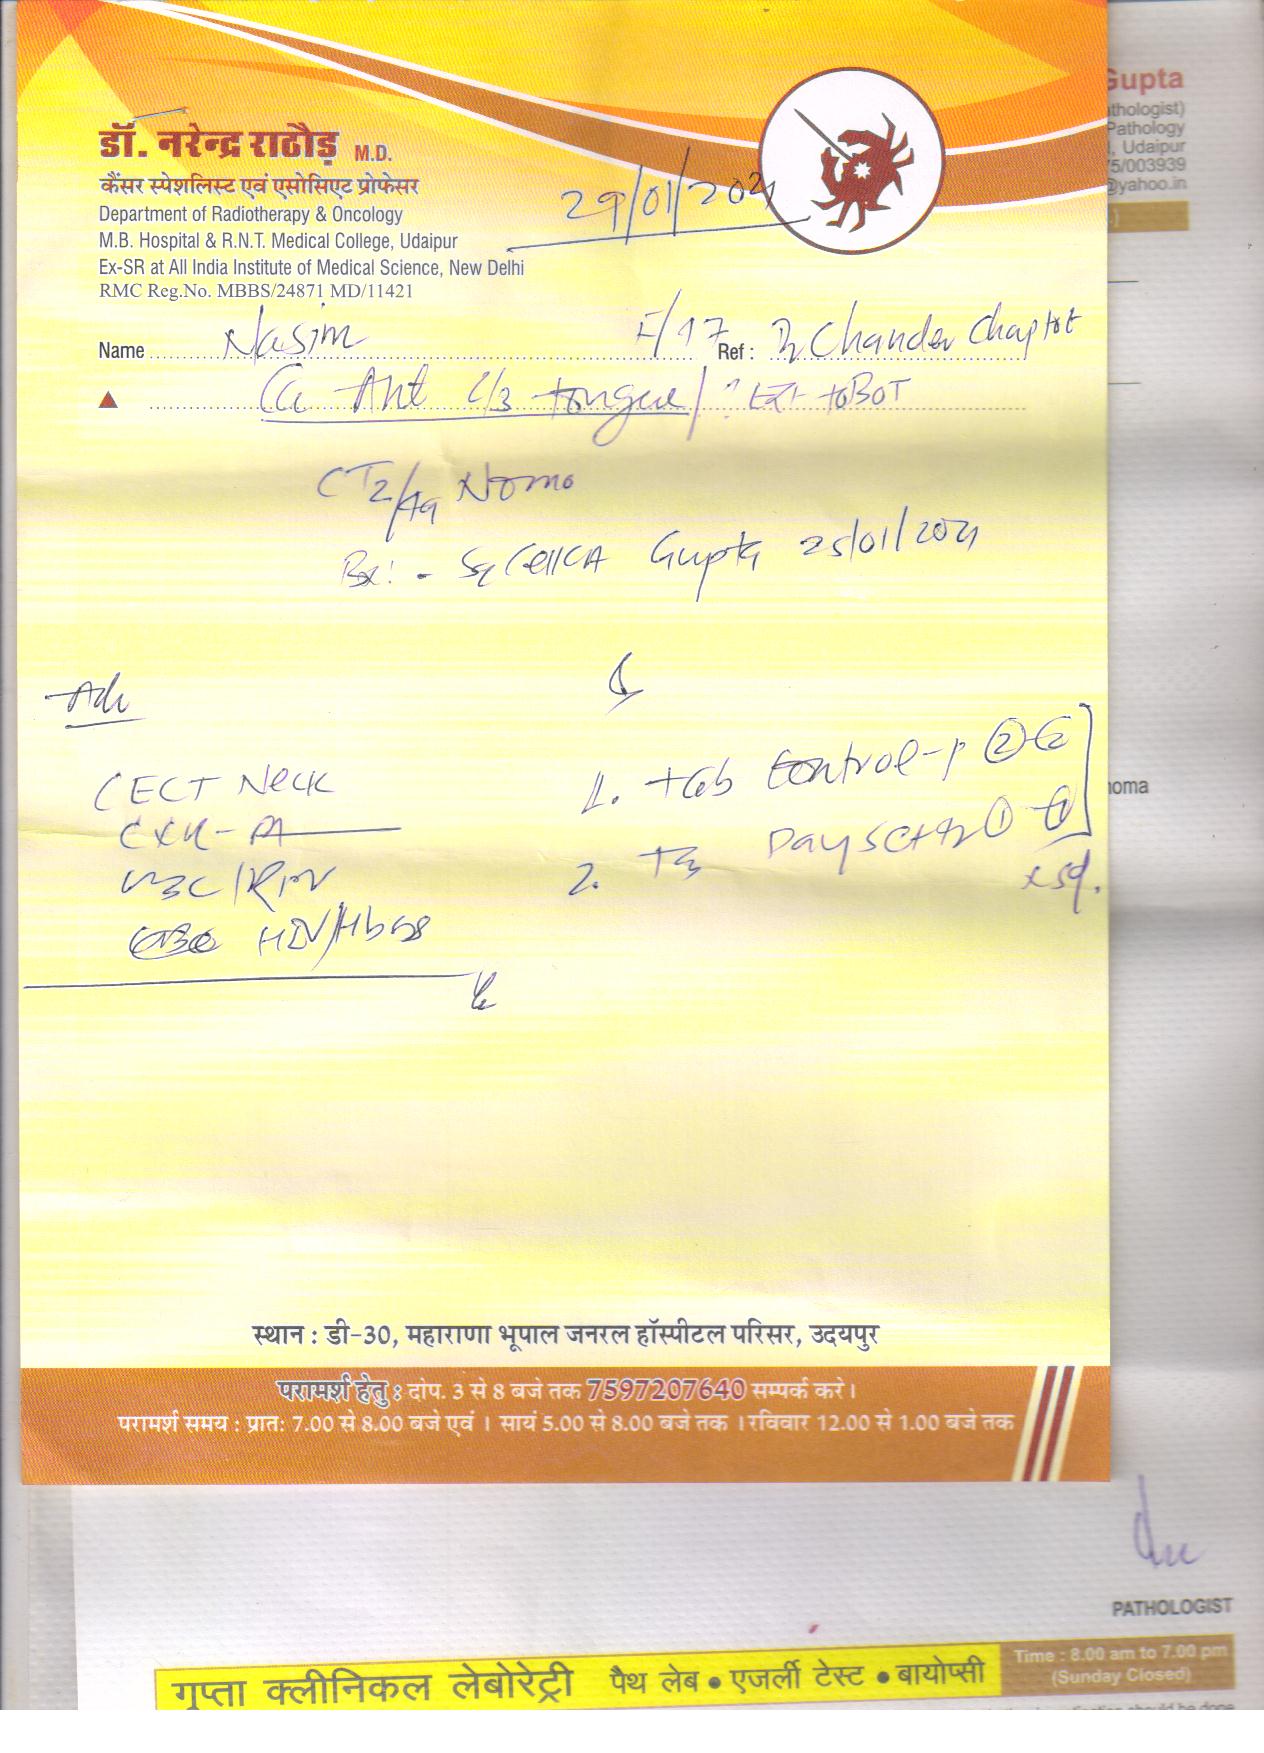 डॉ. नरेन्द्र राठौड़ M.D.
कैंसर स्पेशलिस्ट एवं एसोसिएट प्रोफेसर
Department of Radiotherapy & Oncology
M.B. Hospital & R.N.T. Medical College, Udaipur
Ex-SR at All India Institute of Medical Science, New Delhi
RMC Reg.No. MBBS/24871 MD/11421
29/01/2021
Name Nasim F/17 Ref : Dr Chander Chaplot
Ca Ant 2/3 tongue/ ? Ext to BOT
CT2/ N0M0
Bx: - Sq Cell CA Gupta 25/01/2021
Adv
CECT Neck
CXR - PA
HIV/HbsAg
1. Tab Control-P 2
2. x 5d.
स्थान : डी-30, महाराणा भूपाल जनरल हॉस्पीटल परिसर, उदयपुर
परामर्श हेतु : दोप. 3 से 8 बजे तक 7597207640 सम्पर्क करे।
परामर्श समय : प्रातः 7.00 से 8.00 बजे एवं । सायं 5.00 से 8.00 बजे तक । रविवार 12.00 से 1.00 बजे तक
Gupta
thologist)
Pathology
, Udaipur
5/003939
@yahoo.in
noma
PATHOLOGIST
गुप्ता क्लीनिकल लेबोरेट्री पैथ लेब • एजर्ली टेस्ट • बायोप्सी
Time : 8.00 am to 7.00 pm
(Sunday Closed)
should be done